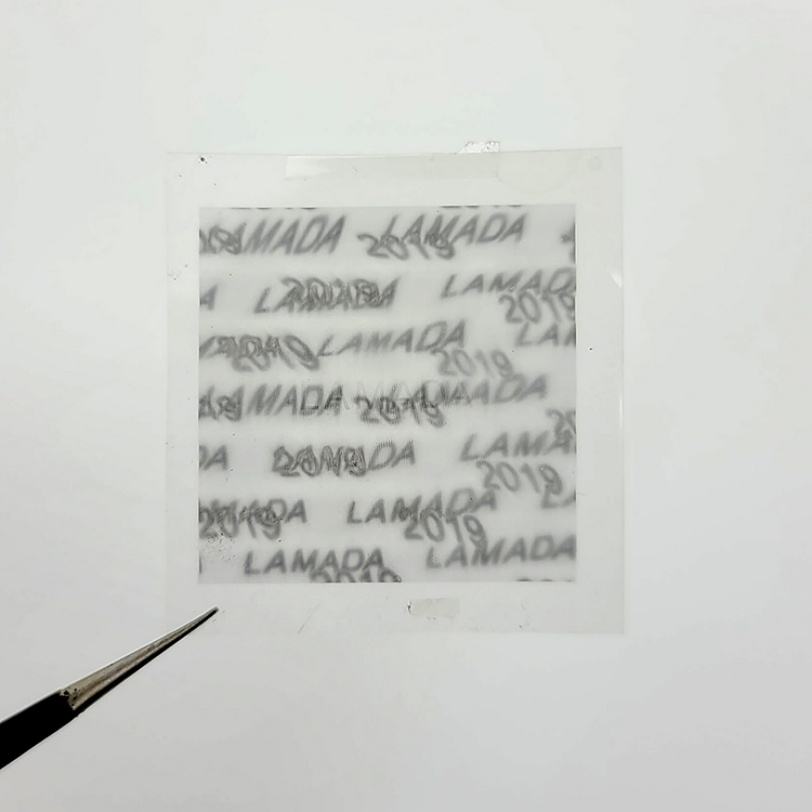 LAMADA LAMADA
2019
LAMADA LAMADA
2019 2019
LAMADA LAM
2019 2019
LAMADA LAMADA
2019
LAMADA LAMA
2019 2019
LAMADA LAMADA
2019 2019
LAMADA LAMADA
2019